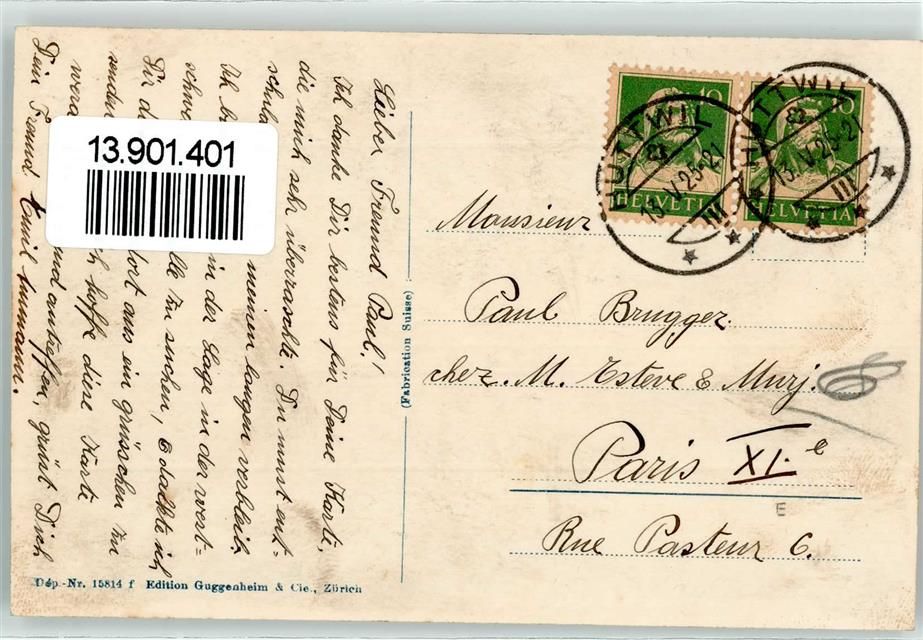 Lieber Freund Paul!
Ich danke Dir bestens für Deine Karte,
die mich sehr überraschte. Du musst ent-
schul meinen langen verbleib.
Ich b in der Lage in der west-
schwe lle zu suchen, dachte ich
Dir d ort aus ein grüsschen zu
sende h hoffe diese Karte
werd und antreffen, grüst Dich
Dein Freund Emil
13.901.401
(Fabrication Suisse)
Dép.-Nr. 15814 f Edition Guggenheim & Cie., Zürich
10 10
HELVETIA HELVETIA
HUTTWIL
13.V.25-21
III
HUTTWIL
13.V.25-21
III
Monsieur
Paul Brugger.
chez. M. Esteve & Murj.
Paris XI.e
E
Rue Pasteur 6.